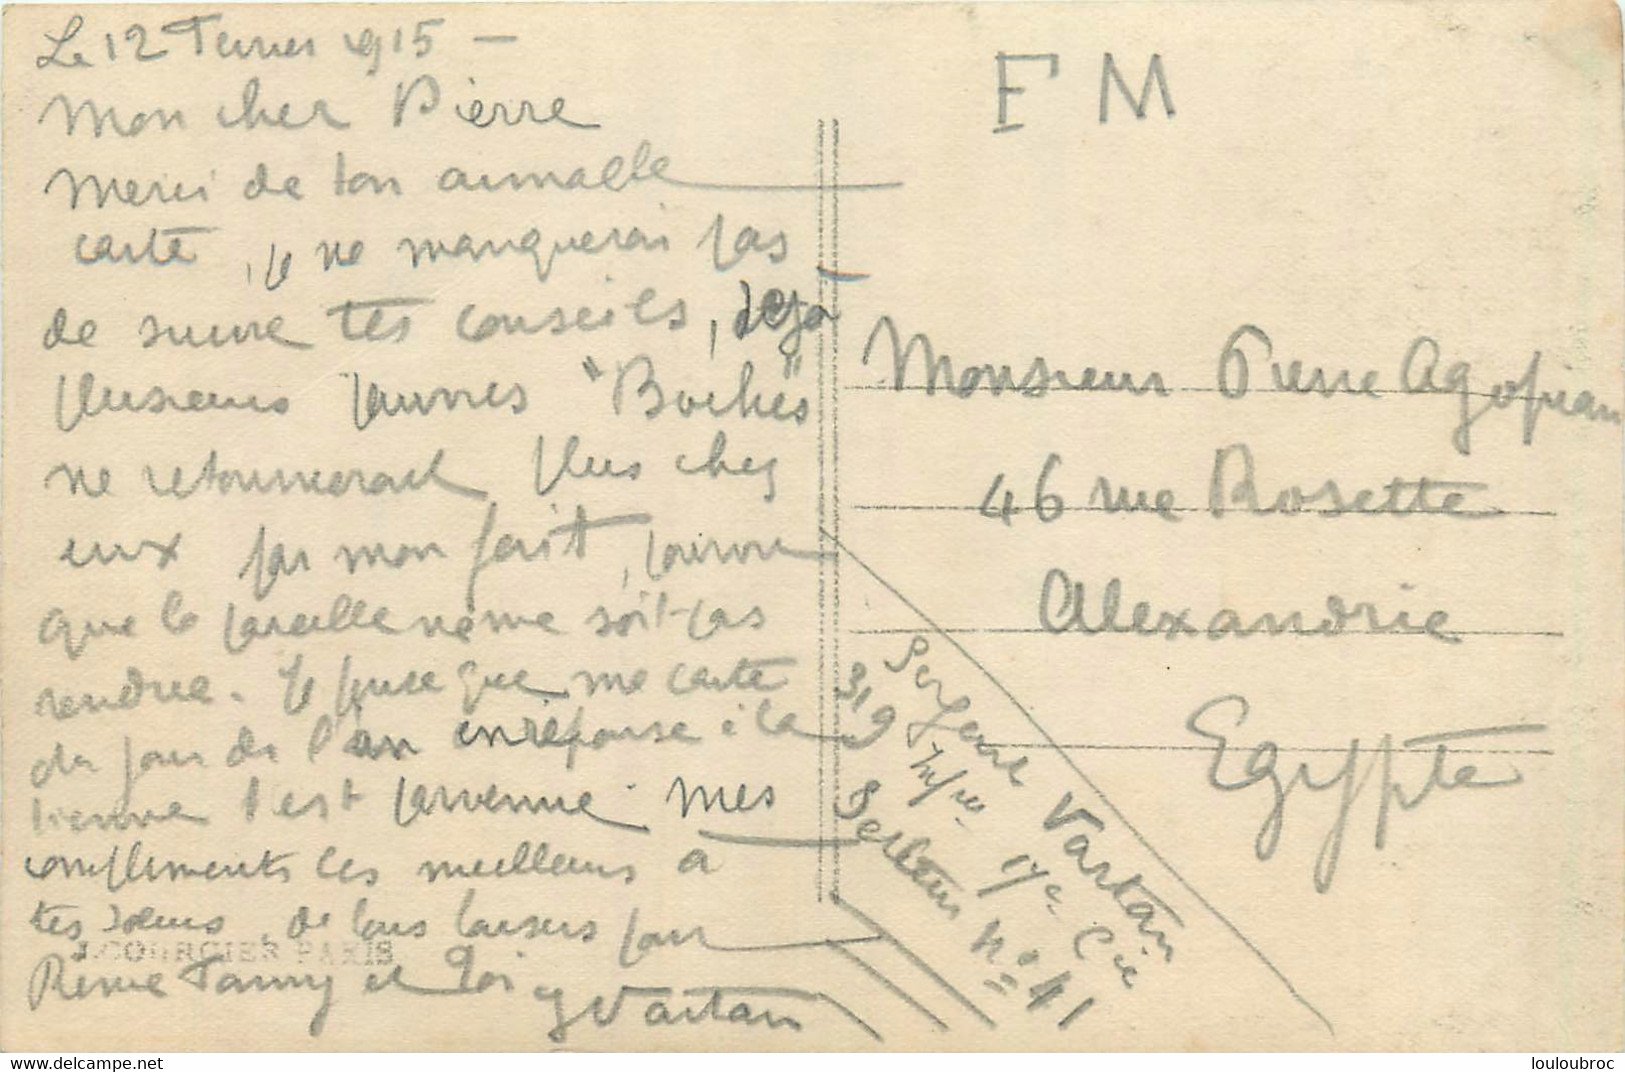 Le 12 Fevrier 1915 -
Mon cher Pierre
Merci de ton aimable
carte, je ne manquerai pas
de suivre tes conseils, deja
plusieurs pauvres "Boches"
ne retourneront plus chez
eux par mon fait, pourvu
que la pareille ne me soit pas
rendue. Je pense que ma carte
du jour de l'an en réponse à la
tienne t'est parvenue. mes
compliments les meilleurs à
tes soeurs, de bons baisers pour
Reine Fanny et toi
Vartan
J. COURCIER PARIS
F M
Monsieur Pierre Agopian
46 rue Rosette
Alexandrie
Egypte
Sergent Vartan
319 17e Cie
Secteur No 41
louloubroc